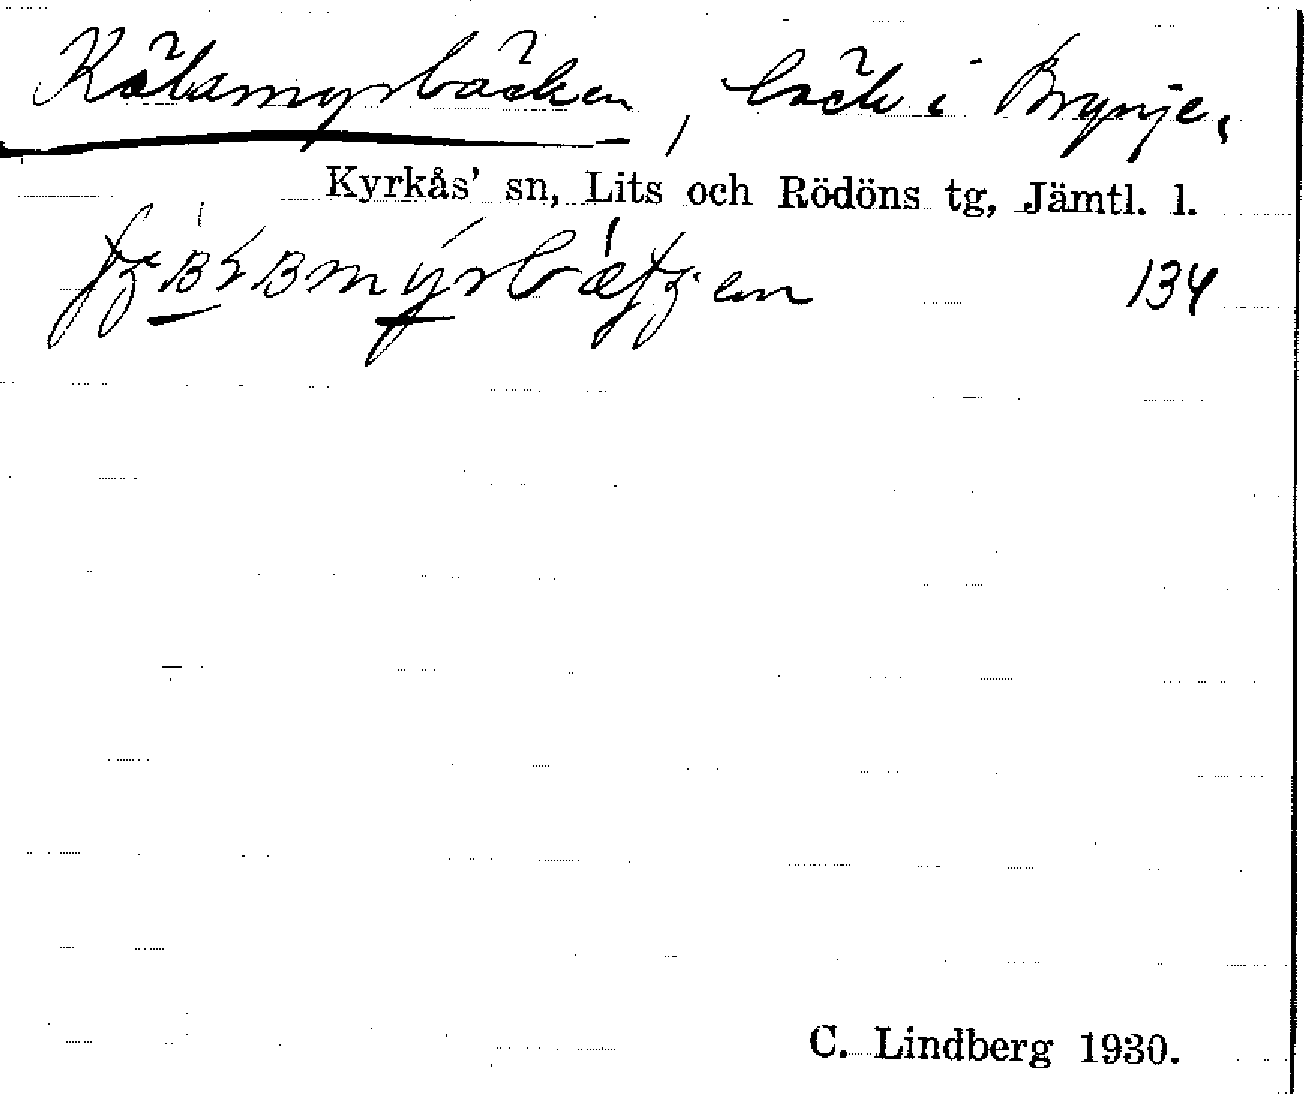 Kölamyrbäcken, bäck i Brynje,
Kyrkås' sn, Lits och Rödöns tg, Jämtl. l.
134
C. Lindberg 1930.